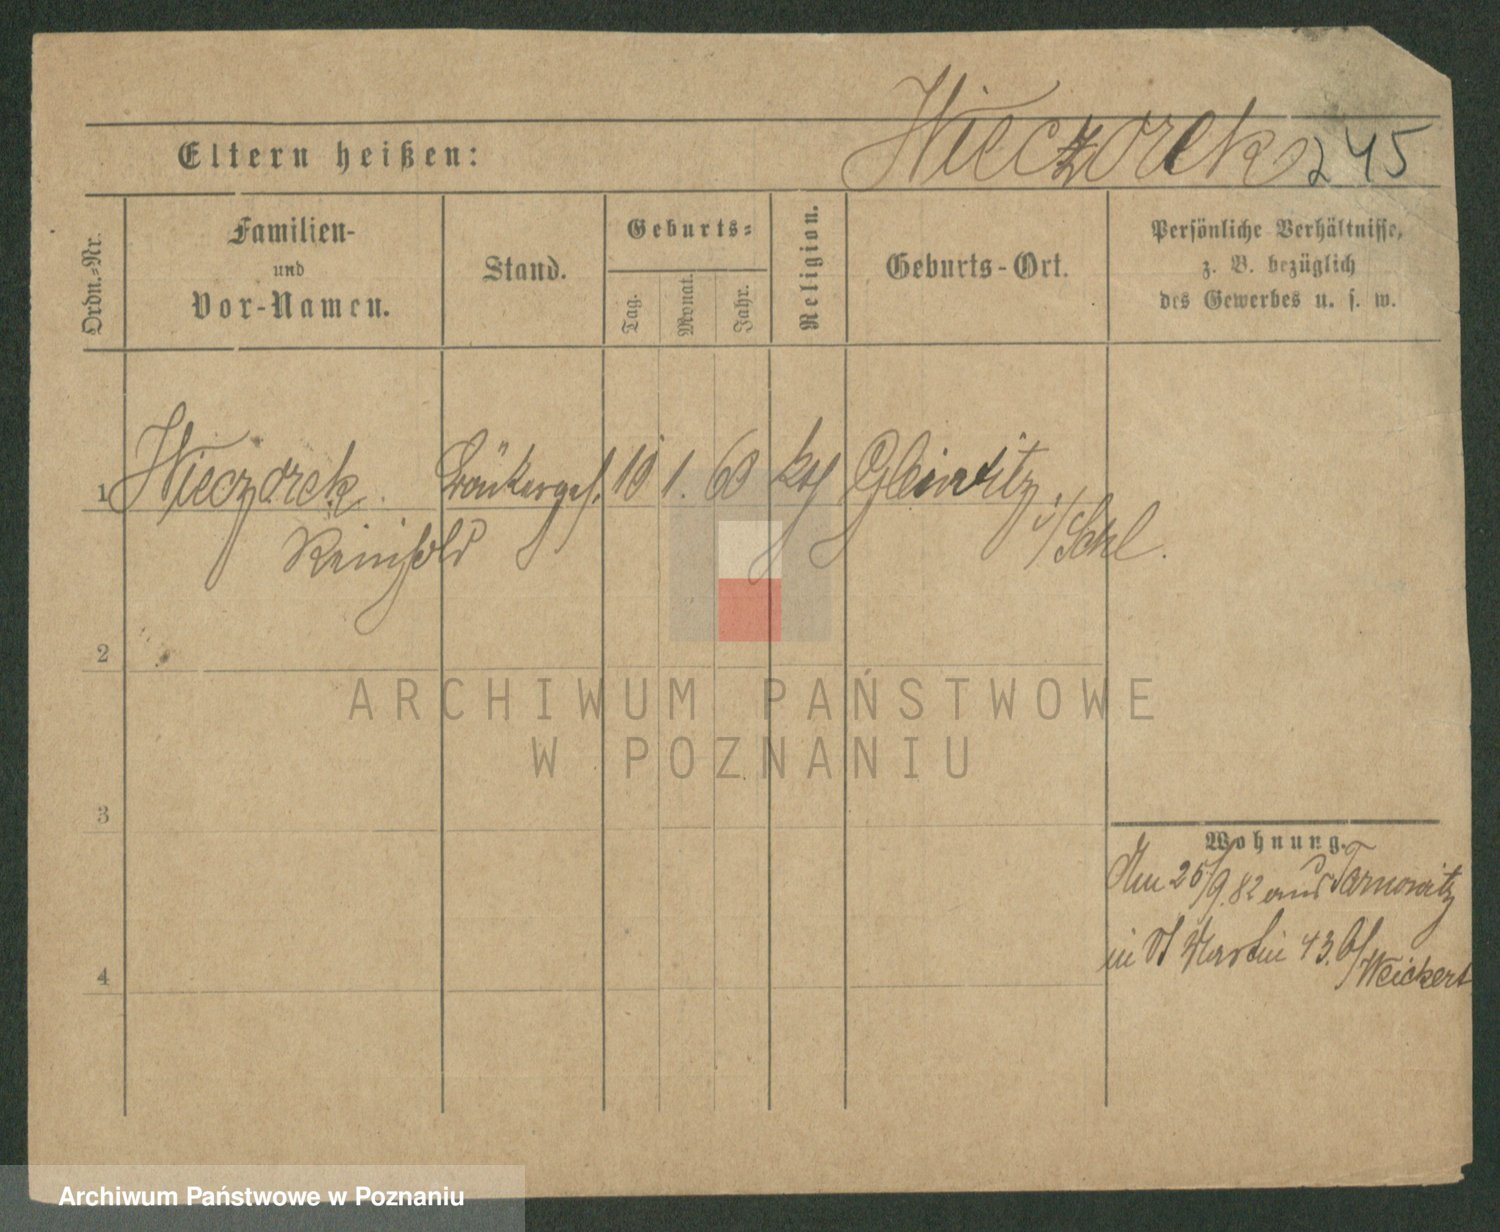 Wieczorek 245
Eltern heißen:
Ordn.-Nr.
Familien-
und
Vor-Namen.
Stand.
Geburts-
Tag.
Monat.
Jahr.
Religion.
Geburts-Ort.
Persönliche Verhältnisse,
z. B. bezüglich
des Gewerbes u. s. w.
1 Wieczorek 10 1. 60 kth Gleiwitz
Reinhold
i/Schl.
2
3
4
Wohnung.
Am 25/9. 82 aus Tarnowitz
in St Martin 43. b/
Weickert
ARCHIWUM PAŃSTWOWE
W POZNANIU
Archiwum Państwowe w Poznaniu